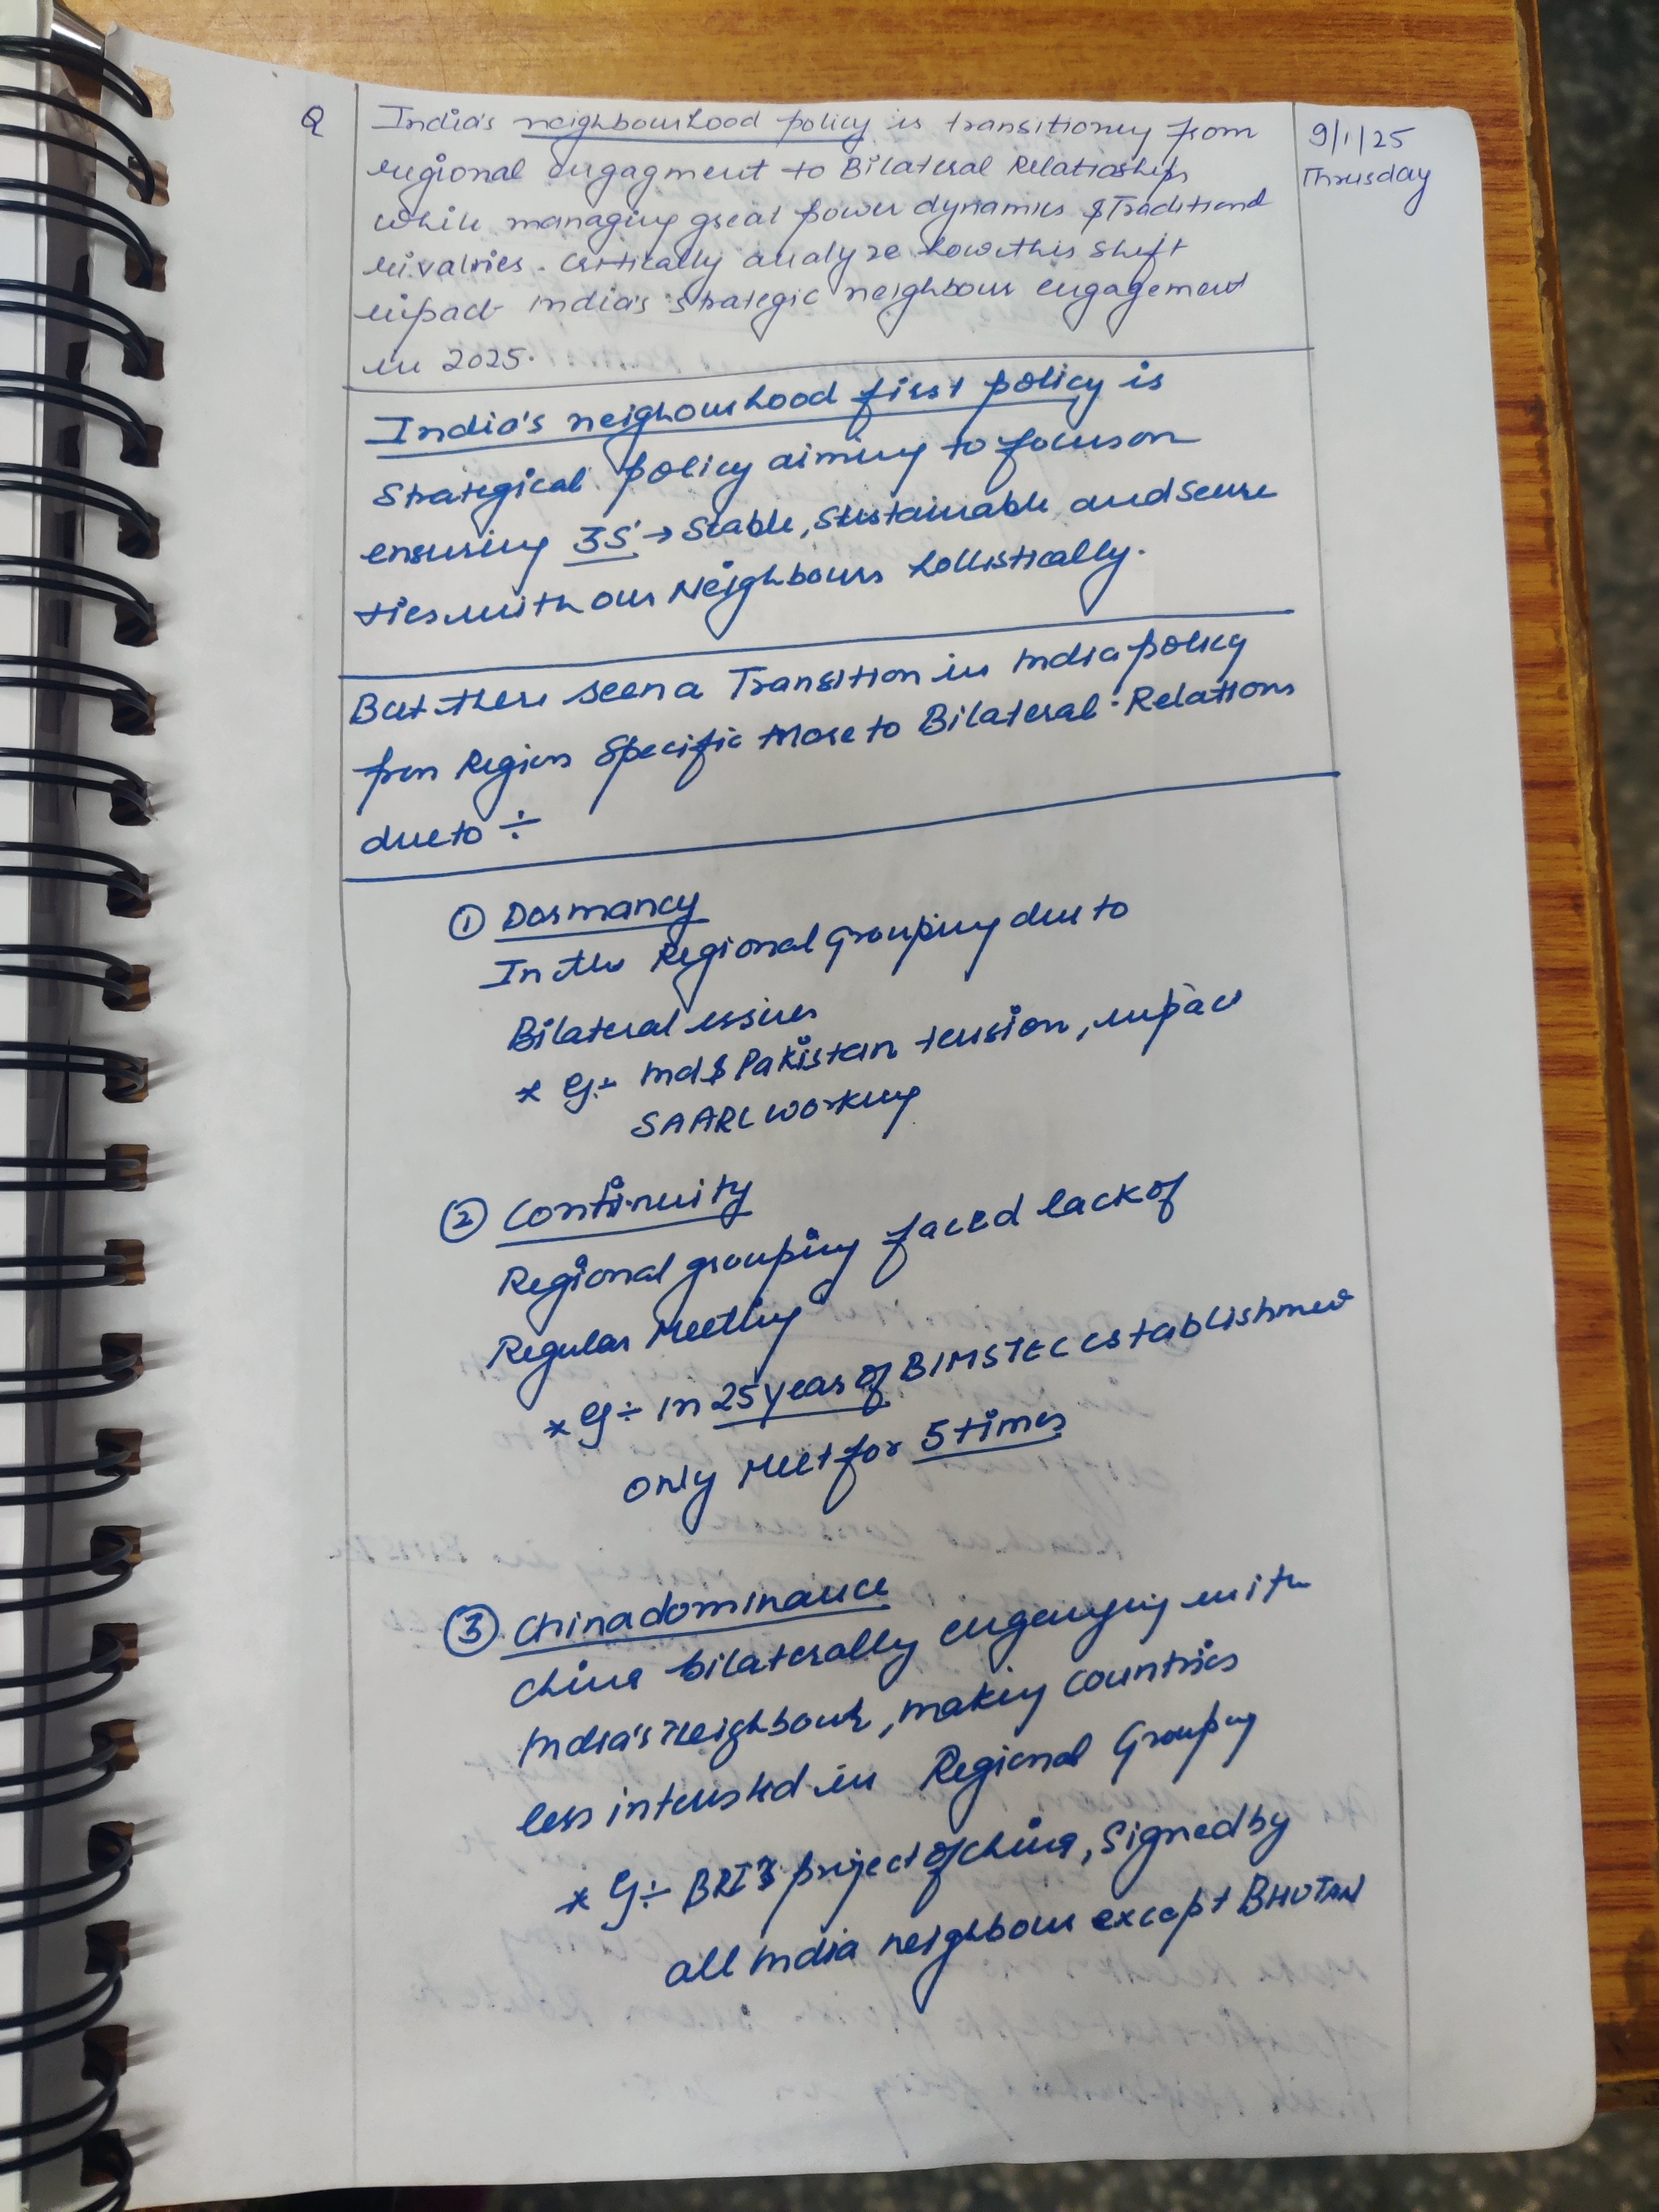 Q
India's neighbourhood policy is transitioney from
regional engagment to Bilateral Relatioships
while managing great power dynamics & Traditional
rivalries. Critically analyze how this shift
impact India's strategic neighbour engagement
in 2025.
9/1/25
Thrusday
India's neighourhood first policy is
Strategical policy aiming to focus on
ensuring 3S' → Stable, Sustainable and secure
ties with our Neighbours hollistically.
But there seen a Transition in India policy
from Region Specific More to Bilateral Relations
due to ÷
① Dormancy
In the Regional grouping due to
Bilateral issues
* Eg ÷ Ind & Pakistan tension, impact
SAARC working
② Continuity
Regional grouping faced lack of
Regular Meeting
* Eg ÷ In 25 years of BIMSTEC establishment
only Meet for 5 times
③ China dominance
China bilaterally engaging with
India's neighbour, making countries
less intersted in Regional Grouping
* Eg ÷ BRI project of China, Signed by
all India neighbour except BHUTAN